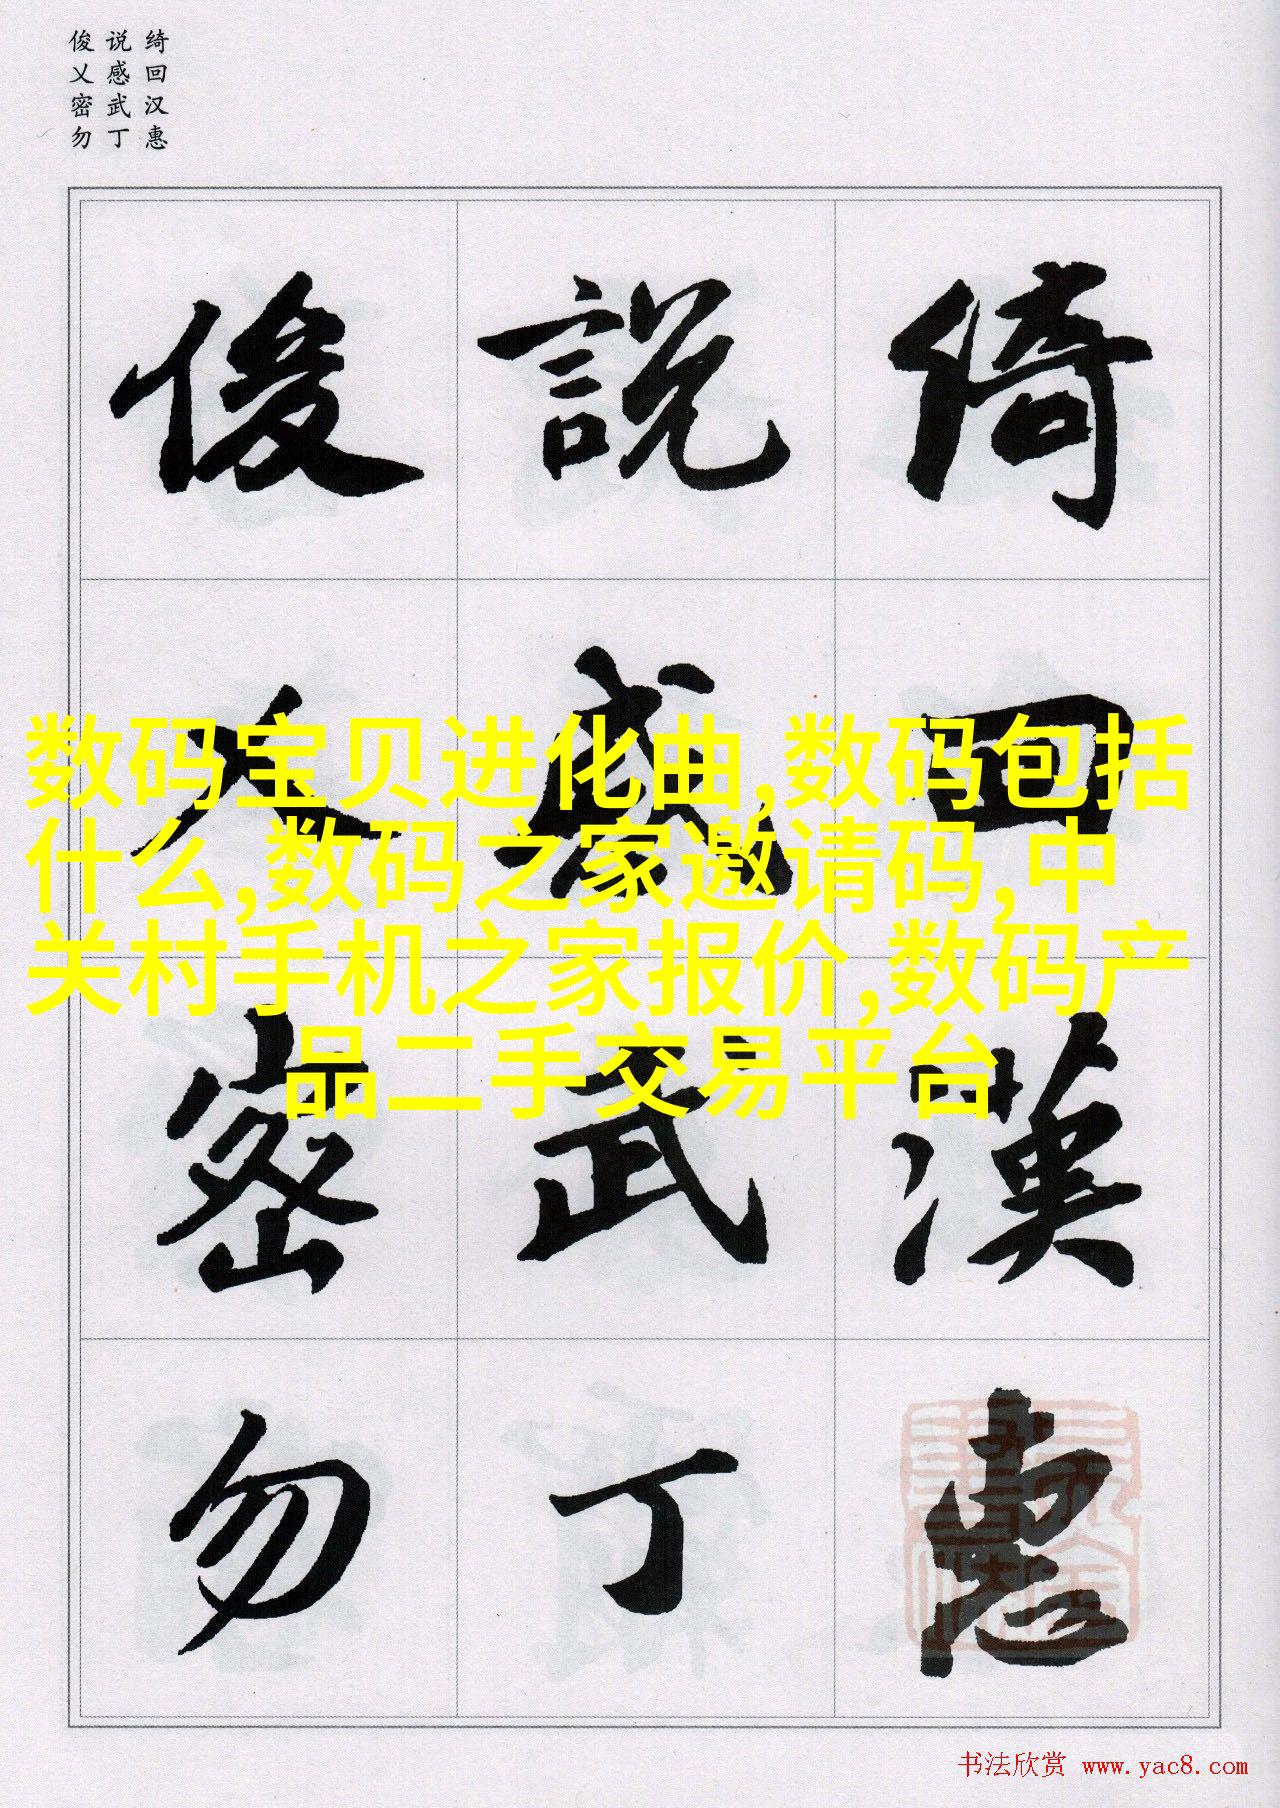 俊说绮
乂感回
密武汉
勿丁惠
俊說綺
乂感回
密武漢
勿丁惠
数码宝贝进化曲,数码包括
什么,数码之家邀请码,中
关村手机之家报价,数码产
品二手交易平台
书法欣赏 www.yac8.com